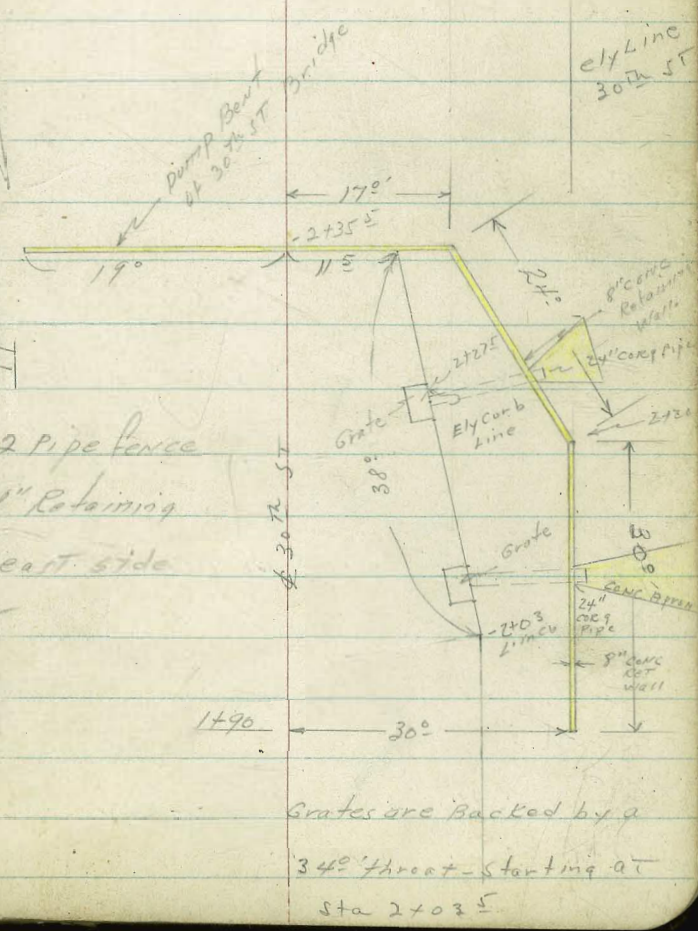 ely Line
30th ST
Dump Bent
of 30th ST Bridge
17º
2+35 5
19º
11 5
24º
8" CONC
Retaining
Wall
2+27 5
24" Corg Pipe
Grate
Ely Curb
Line
38º
2+20
2 Pipe fence
8" Retaining
east side
℄ 30TH ST
Grate
30º
Conc Apron
24"
Corg
Pipe
2+03
8" CONC
RET
Wall
1+90
30º
Grates are Backed by a
34º throat - starting at
Sta 2+03 5